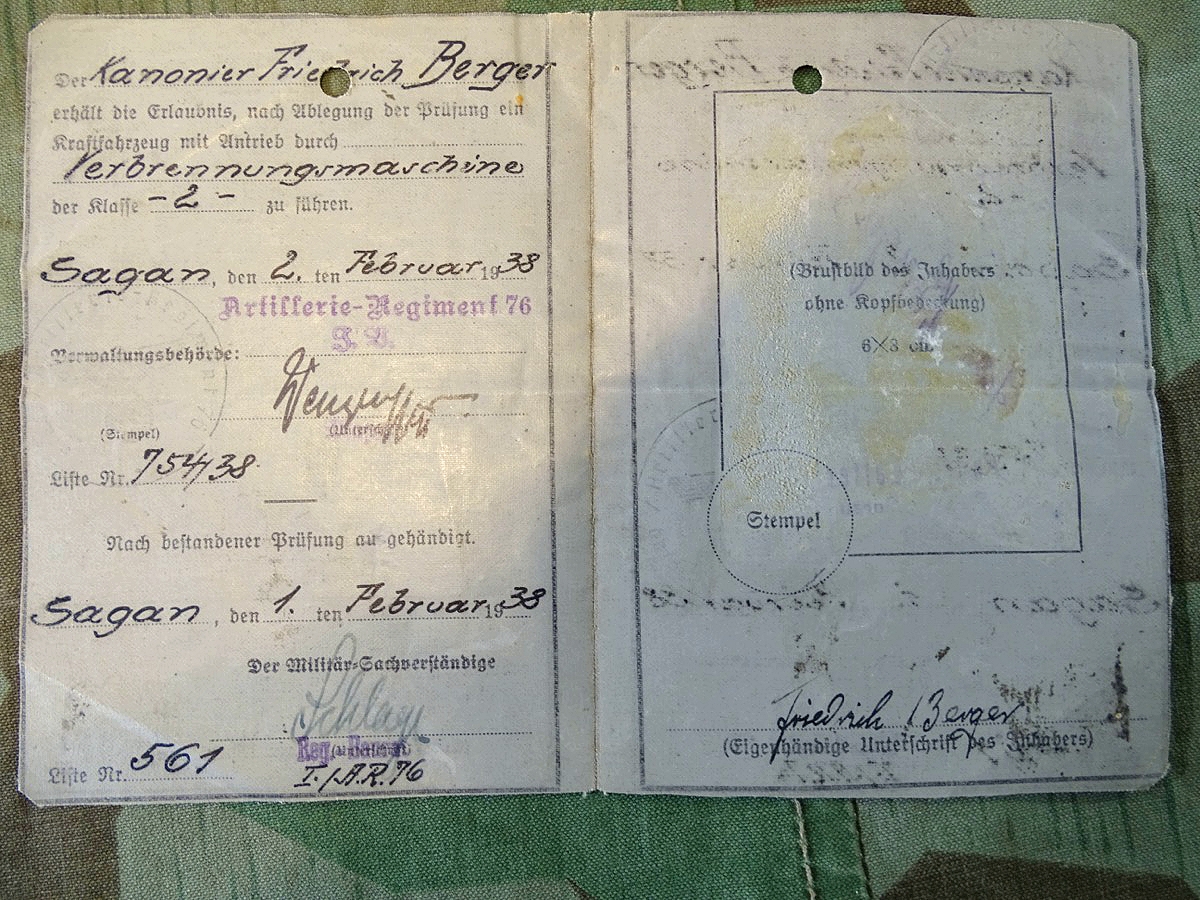 Der Kanonier Friedrich Berger
erhält die Erlaubnis, nach Ablegung der Prüfung ein
Kraftfahrzeug mit Antrieb durch
Verbrennungsmaschine
der Klasse -2- zu führen.
Sagan, den 2. ten Februar 1938
Artillerie-Regiment 76
Verwaltungsbehörde:
(Stempel)
Liste Nr. 754/38
Nach bestandener Prüfung au gehändigt.
Sagan, den 1. ten Februar 1938
Der Militär-Sachverständige
Reg.
(Unterschrift)
Liste Nr. 561
I./A.R. 76
(Brustbild des Inhabers
ohne Kopfbedeckung)
6×8 cm
Stempel
Friedrich Berger
(Eigenhändige Unterschrift des Inhabers)